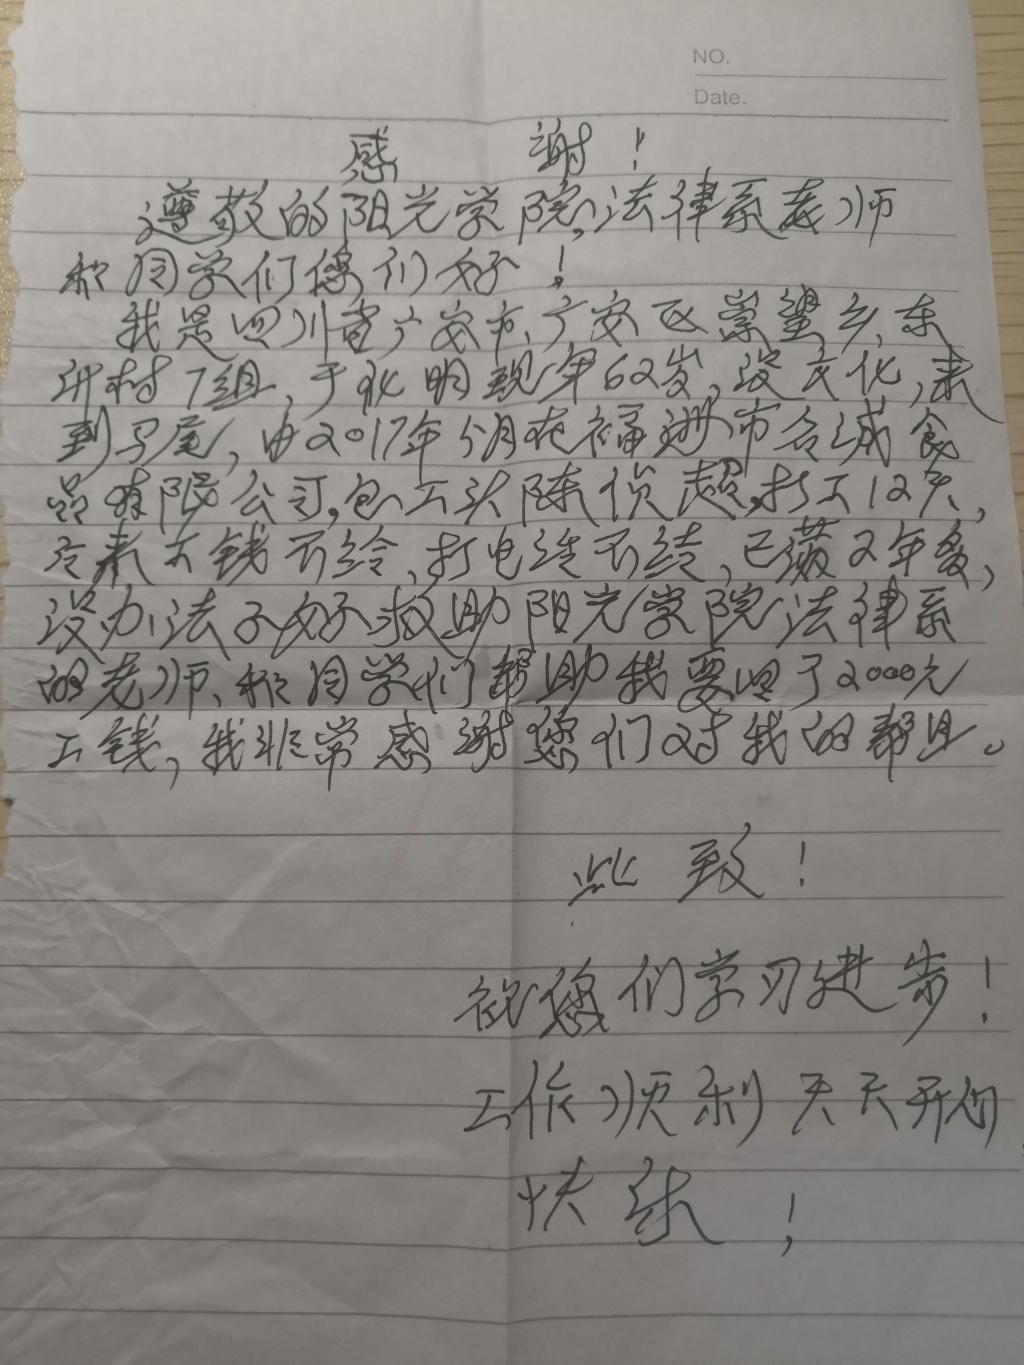 NO.
Date.
感 谢！
遵敬的阳光学院,法律系老师
和同学们您们好！
我是四川省广安市,广安区崇望乡,东
村7组,于化明现年62岁,没文化,来
到马尾,由2017年5月在福州市名成食
品有限公司,包工头陈侦超,打工12天,
工钱不给,打电话不结,已满2年多,
没办法子好求助阳光学院法律系
的老师、和同学们帮助我要回了2000元
工钱,我非常感谢您们对我的帮且。
此致！
祝您们学习进步！
工作顺利天天开心
快乐！